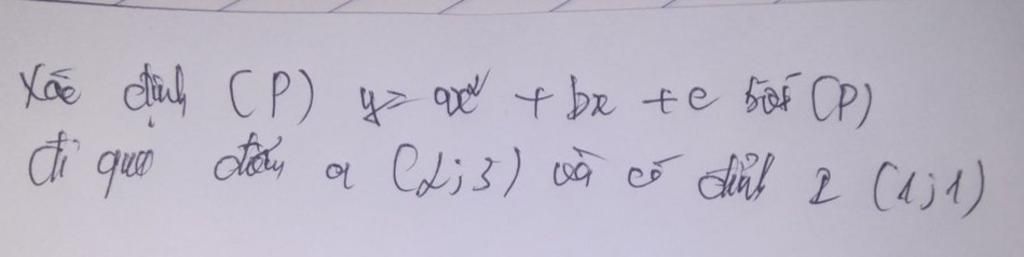 Xác định (P) y = ax² + bx + c biết (P)
đi qua điểm a (2;3) và có đỉnh I (1;1)